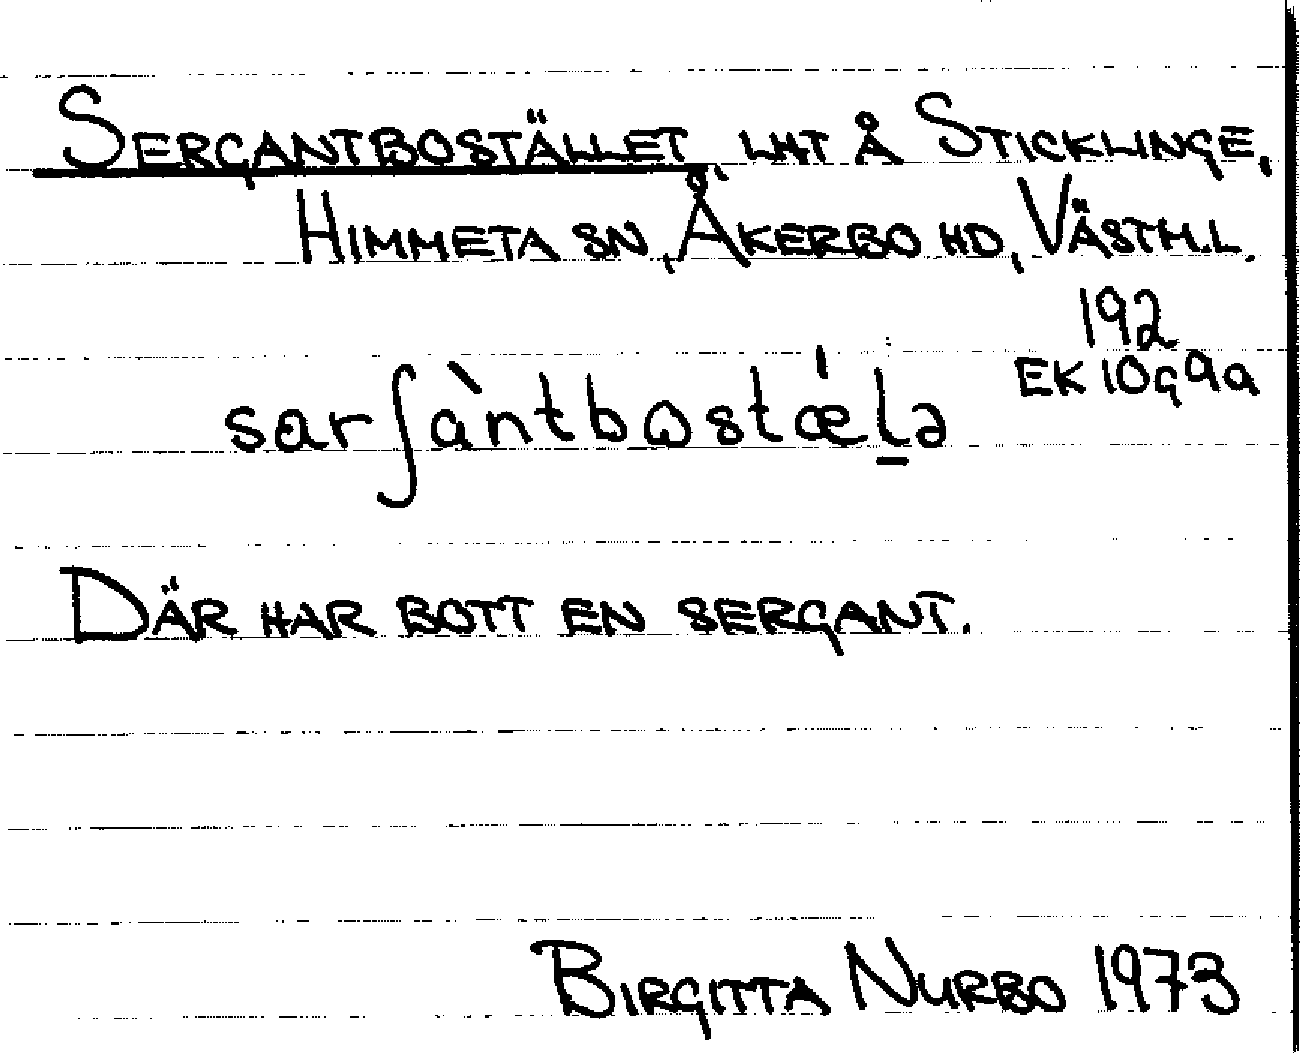 SERGANTBOSTÄLLET, LHT Å STICKLINGE,
HIMMETA SN, ÅKERBO HD, VÄSTM.L.
192
EK 10G9a
sarʃàntbωstǽl̠ə
DÄR HAR BOTT EN SERGANT.
BIRGITTA NURBO 1973